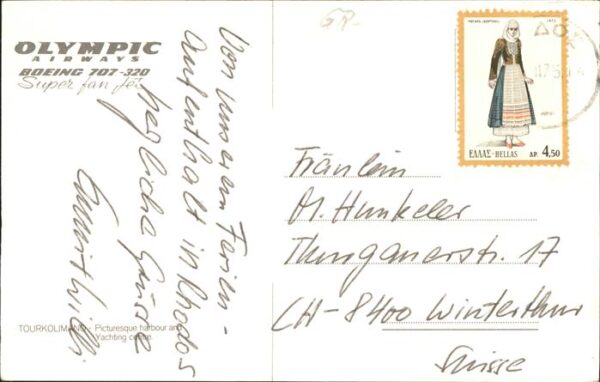 OLYMPIC
AIRWAYS
BOEING 707-320
Super fan jet
Von unserem Ferien-
aufenthalt in Rhodos
herzliche Grüsse
TOURKOLIMANO - Picturesque harbour and
Yachting centre.
GR-
1972
ΕΛΛΑΣ-HELLAS ΔΡ. 4,50
Fräulein
M. Hunkeler
Thurgauerstr. 17
CH-8400 Winterthur
Suisse